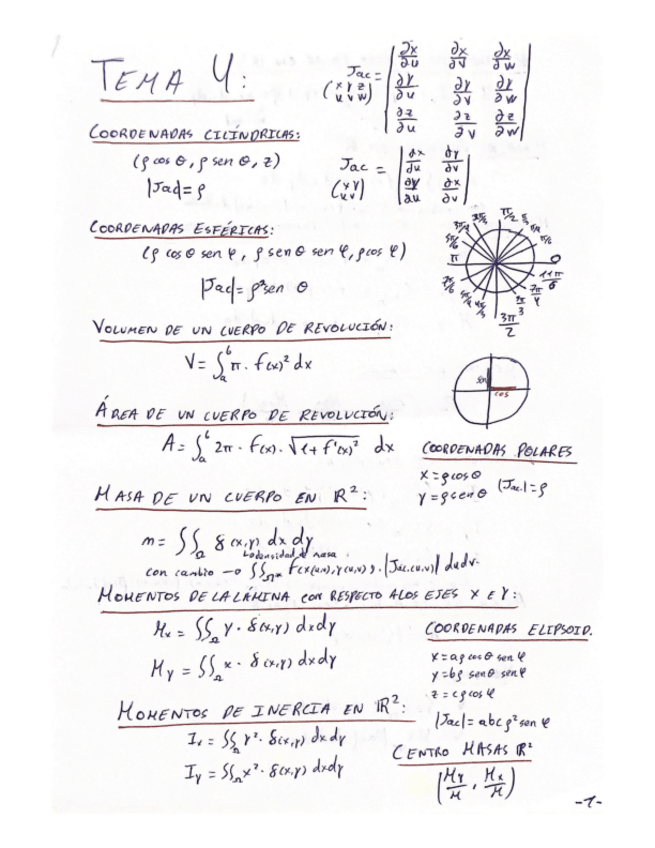 TEMA 4:
Jac (x y z / u v w) = | ∂x/∂u ∂x/∂v ∂x/∂w |
| ∂y/∂u ∂y/∂v ∂y/∂w |
| ∂z/∂u ∂z/∂v ∂z/∂w |
COORDENADAS CILÍNDRICAS:
(ρ cos θ, ρ sen θ, z)
|Jac| = ρ
Jac (x y / u v) = | ∂x/∂u ∂y/∂v |
| ∂y/∂u ∂x/∂v |
COORDENADAS ESFÉRICAS:
(ρ cos θ sen φ, ρ sen θ sen φ, ρ cos φ)
|Jac| = ρ² sen θ
π/2
π
0
11π/6
7π/4
3π/2
VOLUMEN DE UN CUERPO DE REVOLUCIÓN:
V = ∫ₐᵇ π · f(x)² dx
sen
cos
ÁREA DE UN CUERPO DE REVOLUCIÓN:
A = ∫ₐᵇ 2π · f(x) · √(1 + f'(x)²) dx
COORDENADAS POLARES
x = ρ cos θ
y = ρ sen θ |Jac| = ρ
MASA DE UN CUERPO EN ℝ²:
m = ∬_Ω δ(x,y) dx dy
↳ densidad de masa
con cambio → ∬_Ω* f(x(u,v), y(u,v)) · |Jac(u,v)| du dv
MOMENTOS DE LA LÁMINA con RESPECTO A LOS EJES X e Y:
Mx = ∬_Ω y · δ(x,y) dx dy
My = ∬_Ω x · δ(x,y) dx dy
COORDENADAS ELIPSOID.
x = aρ cos θ sen φ
y = bρ sen θ sen φ
z = cρ cos φ
|Jac| = abc ρ² sen φ
MOMENTOS DE INERCIA EN ℝ²:
Ix = ∬_Ω y² · δ(x,y) dx dy
Iy = ∬_Ω x² · δ(x,y) dx dy
CENTRO MASAS ℝ²
(My/M , Mx/M)
-1-